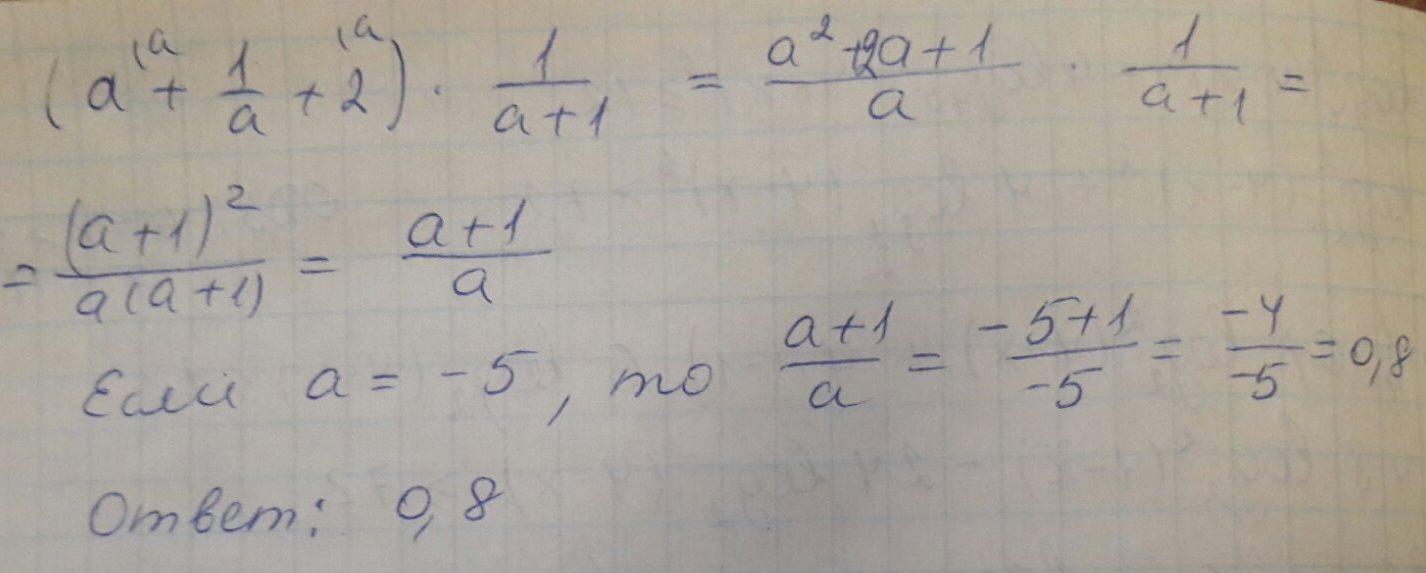 (a^{(a} + \frac{1}{a} + 2^{(a}) · \frac{1}{a+1} = \frac{a^2+2a+1}{a} · \frac{1}{a+1} =
= \frac{(a+1)^2}{a(a+1)} = \frac{a+1}{a}
Если a = -5, то \frac{a+1}{a} = \frac{-5+1}{-5} = \frac{-4}{-5} = 0,8
Ответ: 0,8